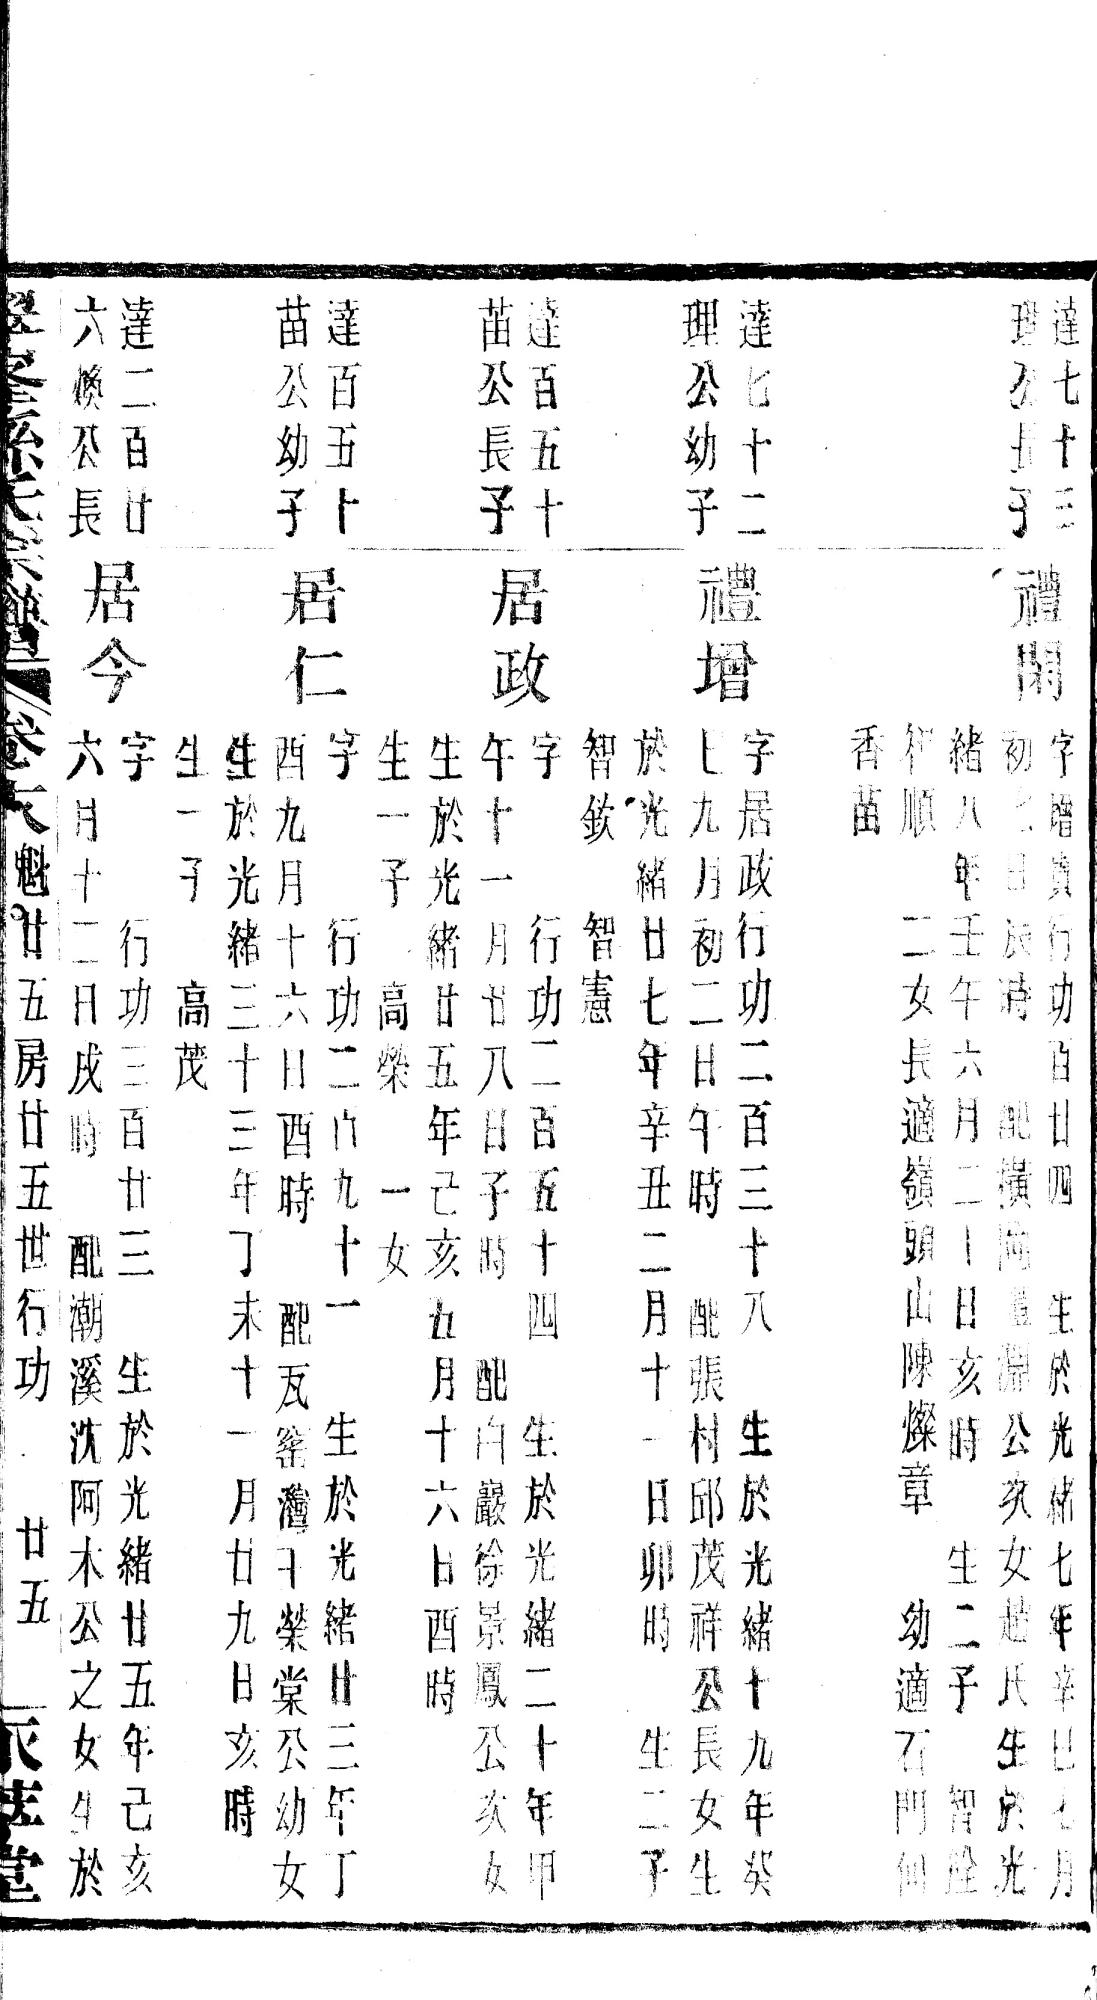 達七十三
理公長子
禮閑
字增貴行功百廿四　生於光緒七年辛巳七月
初七日辰時　配橫阿　淵公次女趙氏生於光
緒八年壬午六月二十日亥時　生二子　智
順　二女長適嶺頭山陳燦章　幼適石門何
香苗
達七十二
理公幼子
禮增
字居政行功二百三十八　生於光緒十九年癸
巳九月初二日午時　配張村邱茂祥公長女生
於光緒廿七年辛丑二月十一日卯時　生二子
智欽　智憲
達百五十
苗公長子
居政
字　行功二百五十四　生於光緒二十年甲
午十一月廿八日子時　配白巖徐景鳳公次女
生於光緒廿五年己亥五月十六日酉時
生一子　高榮　一女
達百五十
苗公幼子
居仁
字　行功二百九十一　生於光緒廿三年丁
酉九月十六日酉時　配瓦窰灣 榮棠公幼女
生於光緒三十三年丁未十一月廿九日亥時
生一子　高茂
達二百廿
六煥公長
居今
字　行功三百廿三　生於光緒廿五年己亥
六月十二日戌時　配潮溪沈阿木公之女生於
孫氏宗譜　卷　魁廿五房廿五世行功　廿五　堂